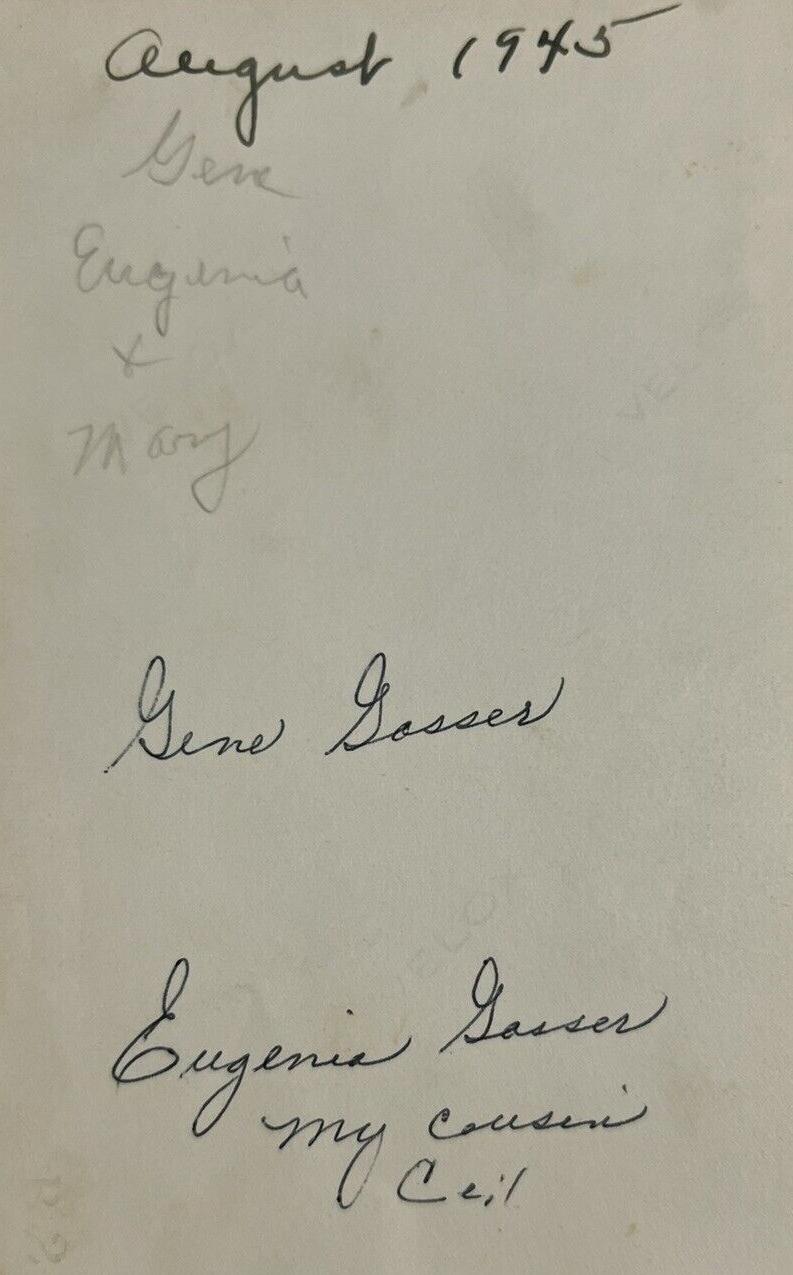 August 1945
Gene
Eugenia
+
Mary
VELOX
Gene Gosser
VELOX
Eugenia Gosser
my cousin
Ceil